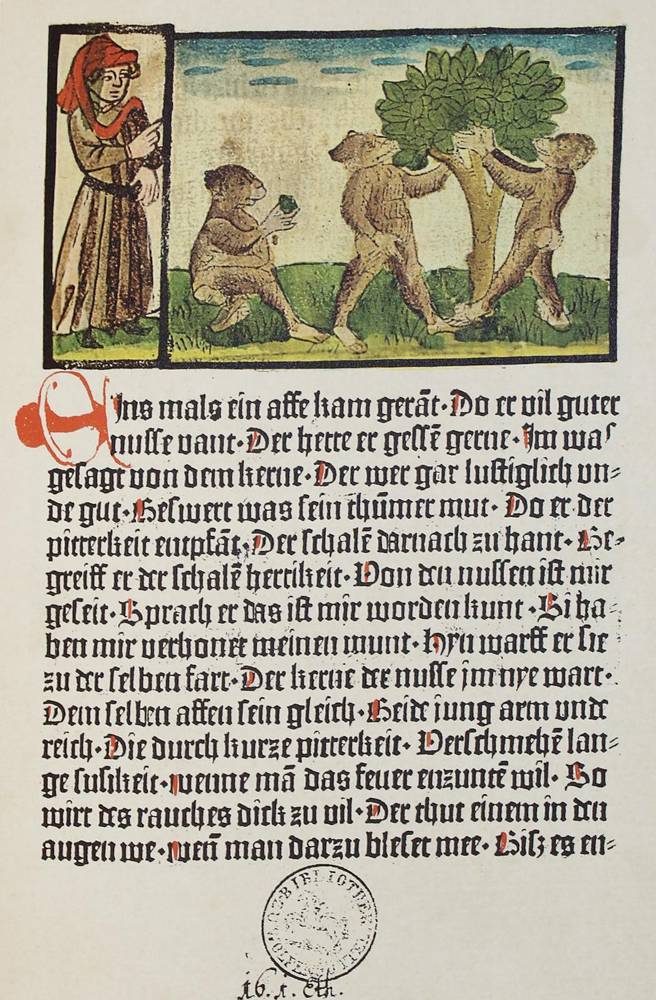 EIns mals ein affe kam gerāt· Do er vil guter
nusse vant· Der hette er gessē gerne· Im was
gesagt von dem kerne· Der wer gar lustiglich vn=
de gut· Beswert was sein thūmer mut· Do er der
pitterkeit entpfāt· Der schalē darnach zu hant· Be=
greiff er der schalē hertikeit· Von den nussen ist mir
geseit· Sprach er das ist mir worden kunt· Si ha=
ben mir verhonet meinen munt· Hyn warff er sie
zu der selben fart· Der kerne der nusse jm nye wart·
Dem selben affen sein gleich· Beide jung arm vnde
reich· Die durch kurze pitterkeit· Verschmehē lan=
ge susikeit· wenne mā das feuer enzuntē wil· So
wirt des rauches dick zu vil· Der thut einem in den
augen we· weñ man darzu bleset mee· Bisz es en=
BIBLIOTHEK
16. 1. Eth.